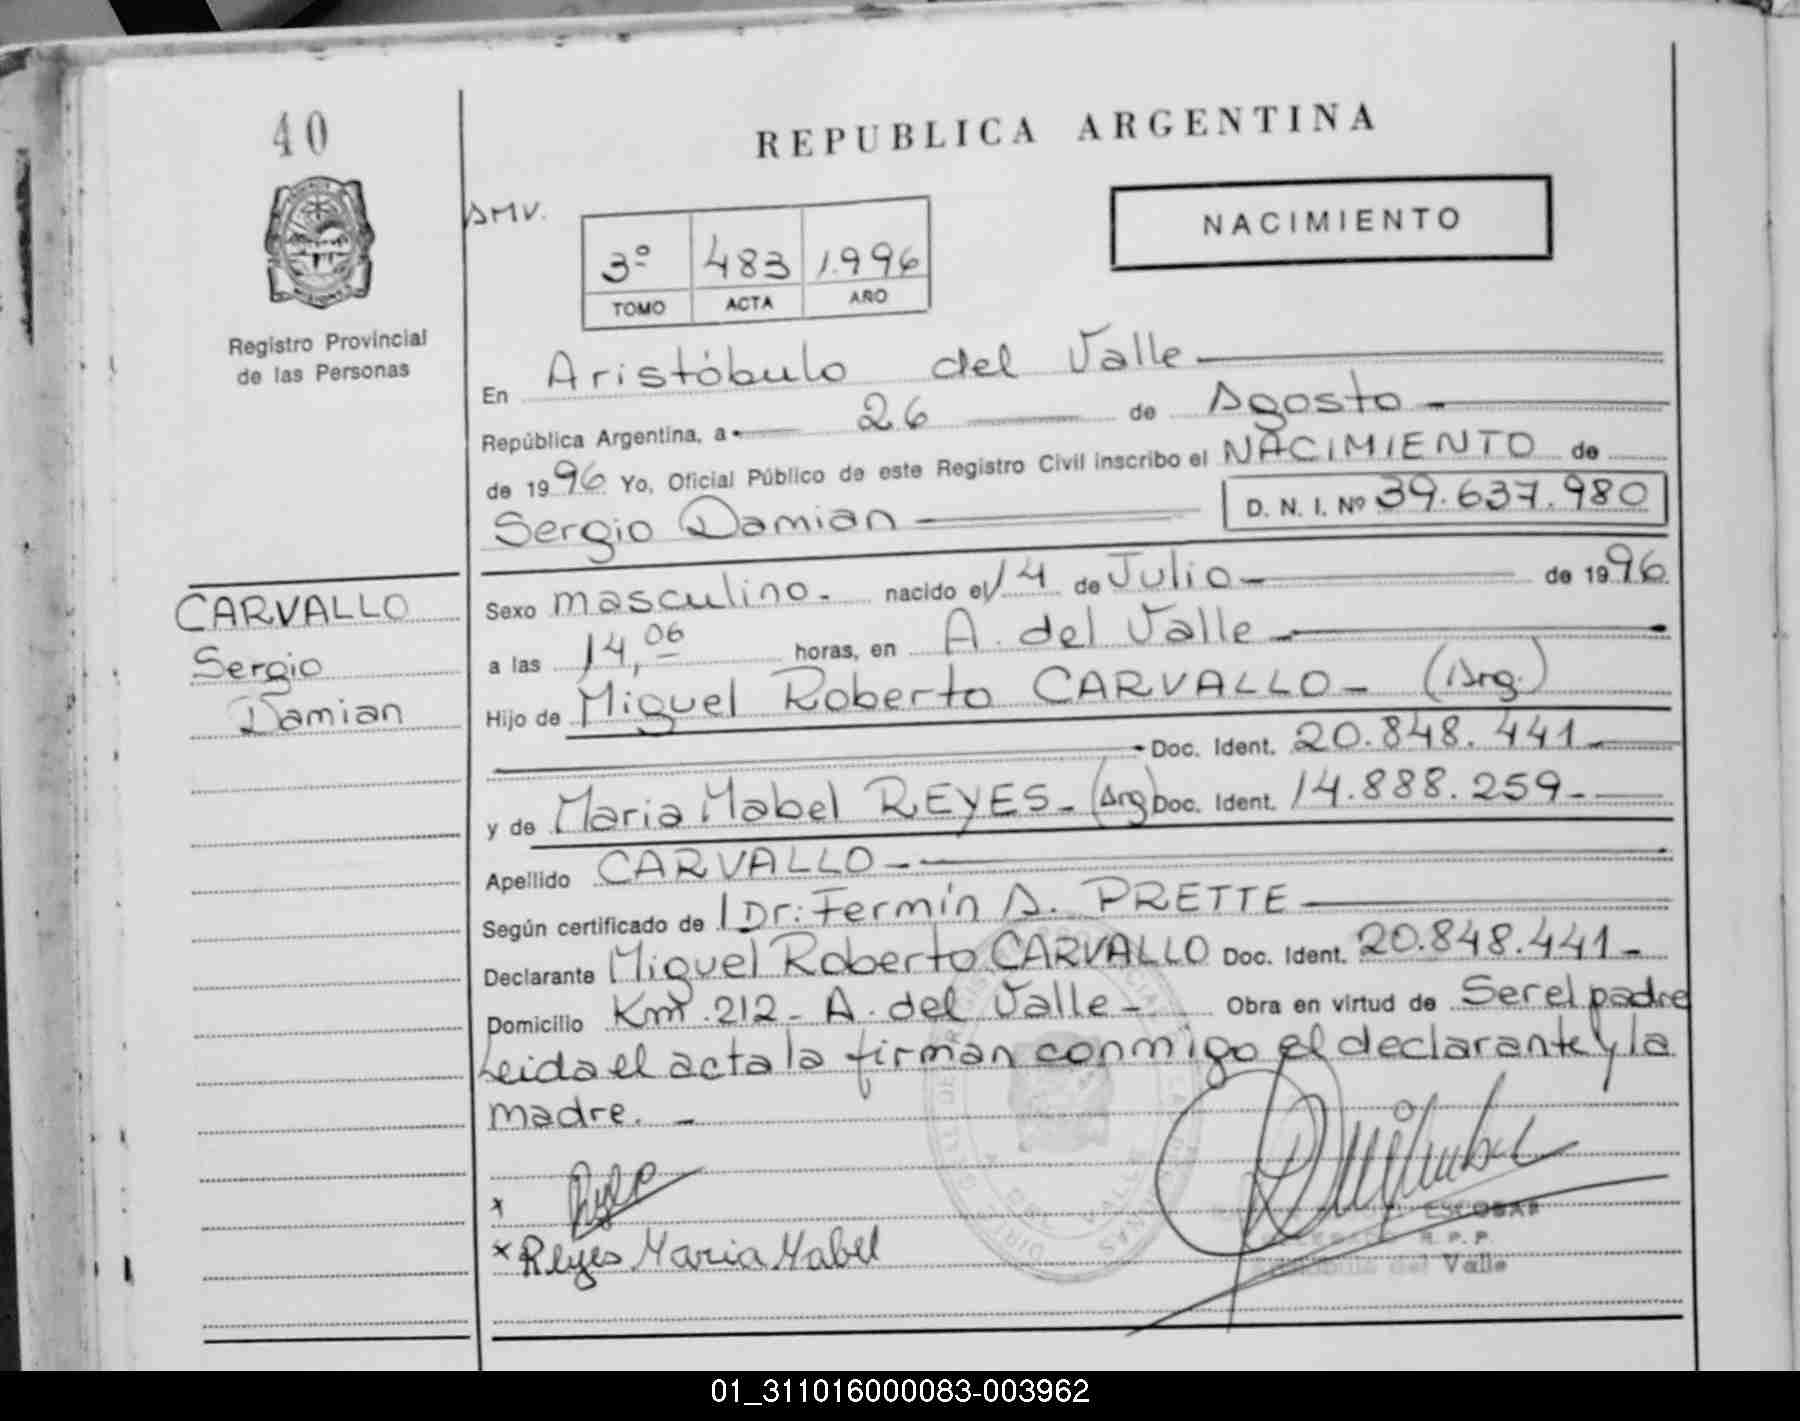 40
REPUBLICA ARGENTINA
NACIMIENTO
AMV.
3º 483 1.996
TOMO ACTA AÑO
Registro Provincial
de las Personas
En Aristóbulo del Valle
República Argentina, a 26 de Agosto
de 1996 Yo, Oficial Público de este Registro Civil inscribo el NACIMIENTO de
Sergio Damian D. N. I. Nº 39.637.980
CARVALLO
Sergio
Damian
Sexo masculino. nacido el 14 de Julio de 1996
a las 14,06 horas, en A. del Valle
Hijo de Miguel Roberto CARVALLO (Arg.)
Doc. Ident. 20.848.441
y de Maria Mabel REYES (Arg) Doc. Ident. 14.888.259
Apellido CARVALLO
Según certificado de Dr: Fermín A. PRETTE
Declarante Miguel Roberto CARVALLO Doc. Ident. 20.848.441
Domicilio Km. 212 - A. del Valle Obra en virtud de Ser el padre
Leida el acta la firman conmigo el declarante y la
madre.
x
x Reyes Maria Mabel
ESCOBAR
R. P. P.
del Valle
01_311016000083-003962